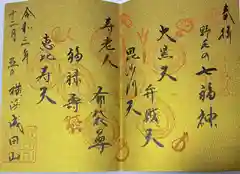 奉拝
野毛の七福神
大黒天
弁財天
毘沙門天
寿老人
布袋尊
福禄寿
恵比寿天
令和三年
十二月
横浜成田山